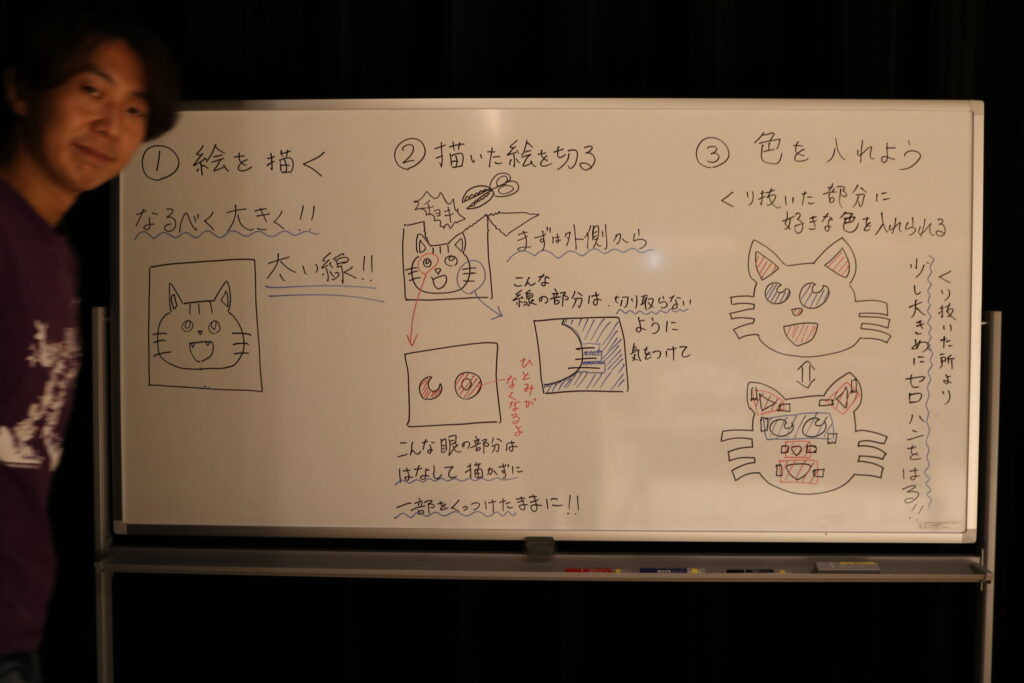 ① 絵を描く
なるべく大きく!!
太い線!!
② 描いた絵を切る
チョキチョキ
まずは外側から
こんな
線の部分は、切り取らない
ように
気をつけて
ひとみが
なくなるよ
こんな眼の部分は
はなして描かずに
一部をくっつけたままに!!
③ 色を入れよう
くり抜いた部分に
好きな色を入れられる
くり抜いた所より
少し大きめにセロハンをはる!!